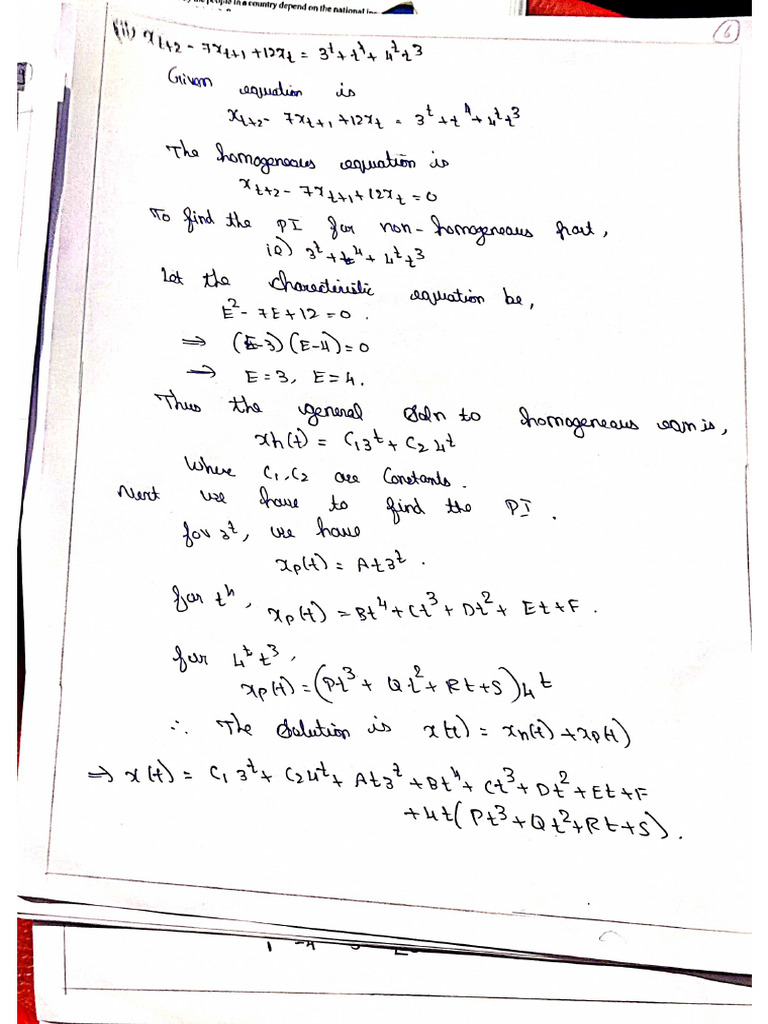 the people in a country depend on the national inc
6
(ii) x_{t+2} - 7x_{t+1} + 12x_t = 3^t + t^4 + 4^t t^3
Given equation is
x_{t+2} - 7x_{t+1} + 12x_t = 3^t + t^4 + 4^t t^3
The homogeneous equation is
x_{t+2} - 7x_{t+1} + 12x_t = 0
To find the PI for non-homogeneous part,
ie) 3^t + t^4 + 4^t t^3
Let the characteristic equation be,
E^2 - 7E + 12 = 0.
⇒ (E-3)(E-4) = 0
→ E = 3, E = 4.
Thus the general soln to homogeneous eqn is,
xh(t) = C_1 3^t + C_2 4^t
Where C_1, C_2 are Constants.
Next we have to find the PI.
for 3^t, we have
x_p(t) = At3^t.
for t^4, x_p(t) = Bt^4 + Ct^3 + Dt^2 + Et + F.
for 4^t t^3,
x_p(t) = (Pt^3 + Qt^2 + Rt + S)4^t
∴ The Solution is x(t) = x_h(t) + x_p(t)
⇒ x(t) = C_1 3^t + C_2 4^t + At3^t + Bt^4 + Ct^3 + Dt^2 + Et + F
+ 4t(Pt^3 + Qt^2 + Rt + S).